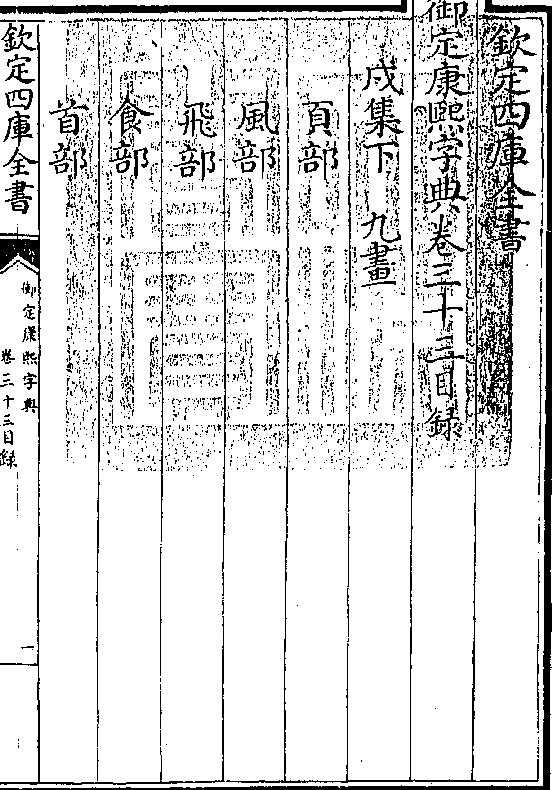 欽定四庫全書
御定康熙字典卷三十三目録
戌集下 九畫
頁部
風部
飛部
食部
首部
欽定四庫全書
御定康熙字典
卷三十三目録
一